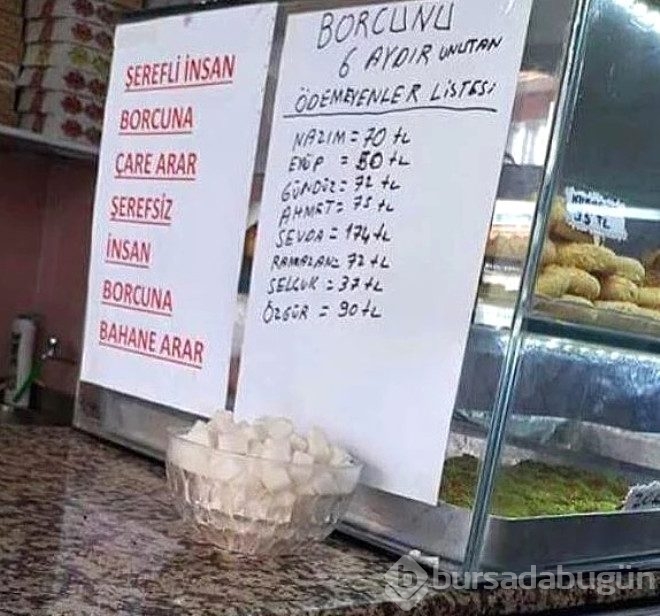 ŞEREFLİ İNSAN
BORCUNA
ÇARE ARAR
ŞEREFSİZ
İNSAN
BORCUNA
BAHANE ARAR
BORCUNU
6 AYDIR UNUTAN
ÖDEMEYENLER LİSTESİ
NAZIM = 70 tL
EYÜP = 50 tL
GÜNDÜZ = 72 tL
AHMET = 75 tL
SEVDA = 174 tL
RAMAZAN = 72 tL
SELÇUK = 37 tL
ÖZGÜR = 90 tL
bursadabugün